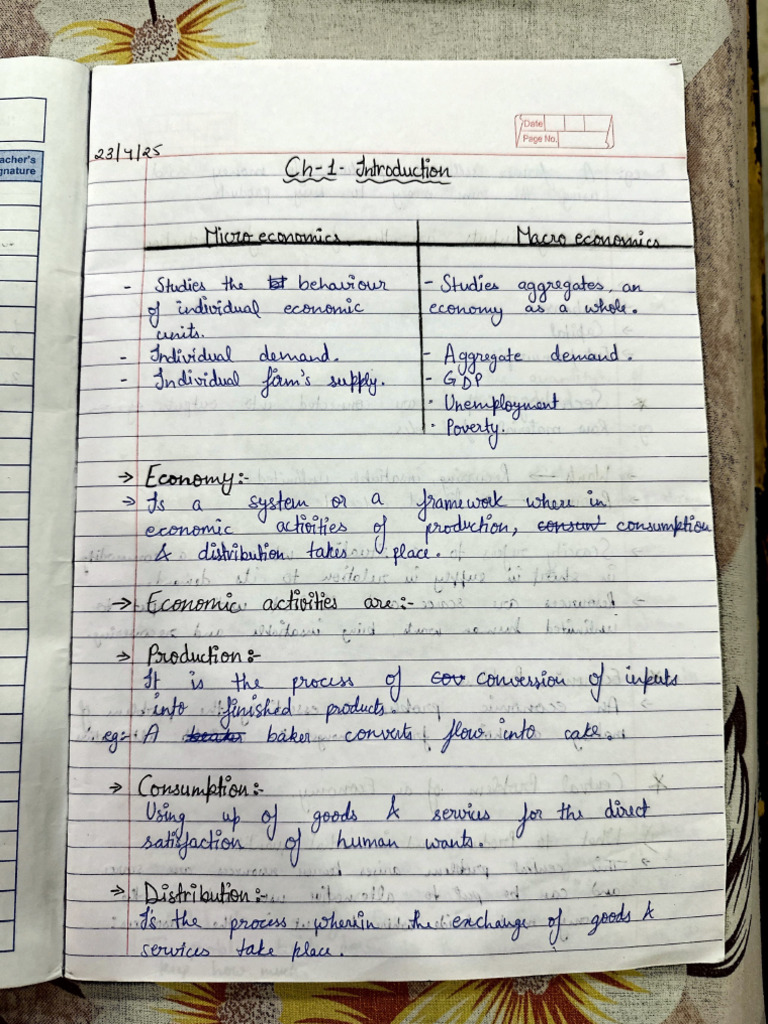 acher's
gnature
Date
Page No.
23/4/25
Ch-1- Introduction
Micro economics
Macro economics
- Studies the behaviour
of individual economic
units.
- Individual demand.
- Individual firm's supply.
- Studies aggregates, an
economy as a whole.
- Aggregate demand.
- GDP
· Unemployment
· Poverty.
→ Economy:-
→ Is a system or a framework where in
economic activities of production, consum consumption
& distribution takes place.
→ Economic activities are:-
→ Production:-
It is the process of cov conversion of inputs
into finished products
eg:- A baker converts flow into cake.
→ Consumption:-
Using up of goods & services for the direct
satisfaction of human wants.
→ Distribution:-
It's the process wherein the exchange of goods &
services take place.